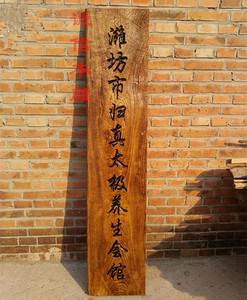 潍坊市归真太极养生会馆